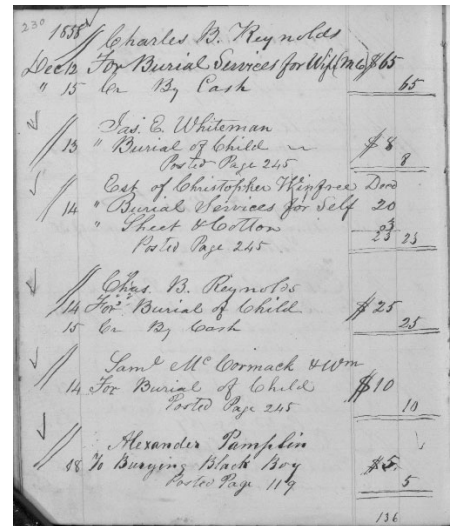 230
1858 Charles B. Reynolds
Dec 12 For Burial Services for Wife (M C) $65
" 15 Cr By Cash 65
Jas. E. Whiteman
13 " Burial of Child $8
Posted Page 245 8
Est of Christopher Winfree Decd
14 " Burial Services for Self 20
" Sheet & Cotton 3
Posted Page 245 23 23
Chas. B. Reynolds
14 For Burial of Child $25
15 Cr By Cash 25
Saml McCormack & Wm
14 For Burial of Child $10
Posted Page 245 10
Alexander Pamplin
18 To Burying Black Boy $5
Posted Page 119 5
136